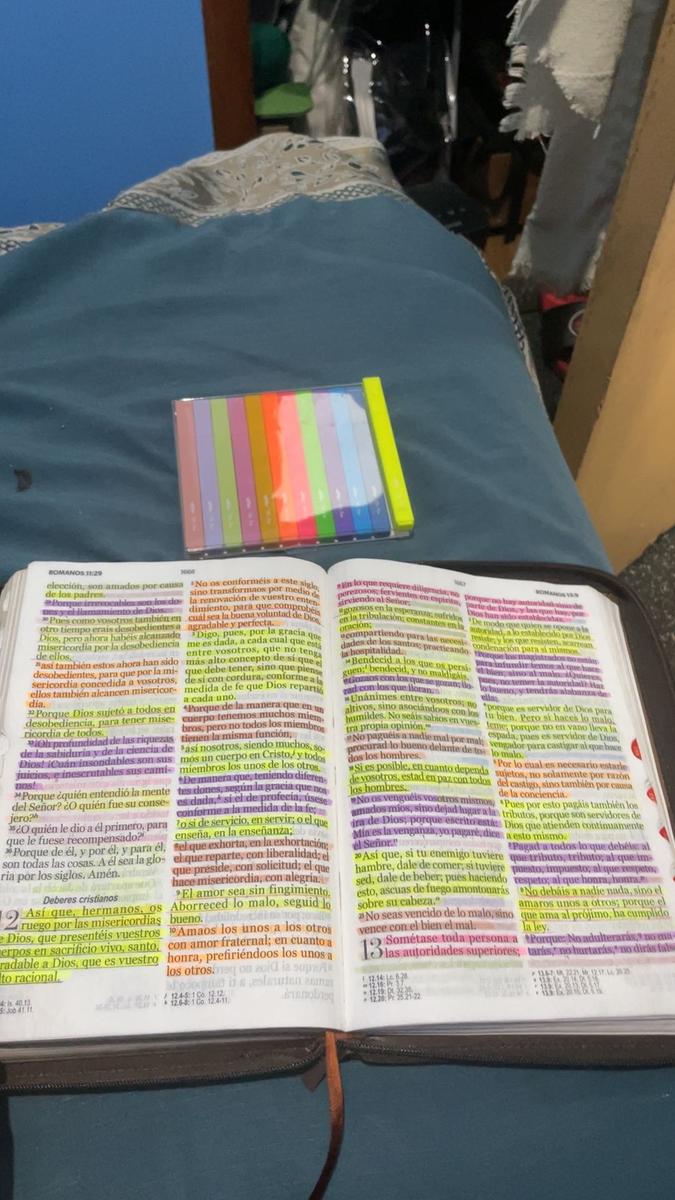 ROMANOS 11:29
1666
elección, son amados por causa
de los padres.
²⁹Porque irrevocables son los do-
nes y el llamamiento de Dios.
³⁰Pues como vosotros también en
otro tiempo erais desobedientes a
Dios, pero ahora habéis alcanzado
misericordia por la desobediencia
de ellos,
³¹así también éstos ahora han sido
desobedientes, para que por la mi-
sericordia concedida a vosotros,
ellos también alcancen misericor-
dia.
³²Porque Dios sujetó a todos en
desobediencia, para tener mise-
ricordia de todos.
³³¡Oh profundidad de las riquezas
de la sabiduría y de la ciencia de
Dios! ¡Cuán insondables son sus
juicios, e inescrutables sus cami-
nos!
³⁴Porque ¿quién entendió la mente
del Señor? ¿O quién fue su conse-
jero?
³⁵¿O quién le dio a él primero, para
que le fuese recompensado?
³⁶Porque de él, y por él, y para él,
son todas las cosas. A él sea la glo-
ria por los siglos. Amén.
Deberes cristianos
12 Así que, hermanos, os
ruego por las misericordias
de Dios, que presentéis vuestros
cuerpos en sacrificio vivo, santo,
agradable a Dios, que es vuestro
culto racional.
²No os conforméis a este siglo,
sino transformaos por medio de
la renovación de vuestro enten-
dimiento, para que comprobéis
cuál sea la buena voluntad de Dios,
agradable y perfecta.
³Digo, pues, por la gracia que
me es dada, a cada cual que está
entre vosotros, que no tenga
más alto concepto de sí que el
que debe tener, sino que piense
de sí con cordura, conforme a la
medida de fe que Dios repartió
a cada uno.
⁴Porque de la manera que en un
cuerpo tenemos muchos miem-
bros, pero no todos los miembros
tienen la misma función,
⁵así nosotros, siendo muchos, so-
mos un cuerpo en Cristo, y todos
miembros los unos de los otros.
⁶De manera que, teniendo diferen-
tes dones, según la gracia que nos
es dada, si el de profecía, úsese
conforme a la medida de la fe;
⁷o si de servicio, en servir; o el que
enseña, en la enseñanza;
⁸el que exhorta, en la exhortación;
el que reparte, con liberalidad; el
que preside, con solicitud; el que
hace misericordia, con alegría.
⁹El amor sea sin fingimiento.
Aborreced lo malo, seguid lo
bueno.
¹⁰Amaos los unos a los otros
con amor fraternal; en cuanto a
honra, prefiriéndoos los unos a
los otros.
4: Is. 40.13.
5: Job 41.11.
12.4-5: 1 Co. 12.12.
12.6-8: 1 Co. 12.4-11.
1667
ROMANOS 13:9
¹¹En lo que requiere diligencia, no
perezosos; fervientes en espíritu,
sirviendo al Señor;
¹²gozosos en la esperanza; sufridos
en la tribulación; constantes en la
oración;
¹³compartiendo para las necesi-
dades de los santos; practicando
la hospitalidad.
¹⁴Bendecid a los que os persi-
guen; bendecid, y no maldigáis.
llo-
rad con los que lloran.
¹⁶Unánimes entre vosotros; no
altivos, sino asociándoos con los
humildes. No seáis sabios en vues-
tra propia opinión.
¹⁷No paguéis a nadie mal por mal;
procurad lo bueno delante de to-
dos los hombres.
¹⁸Si es posible, en cuanto dependa
de vosotros, estad en paz con todos
los hombres.
¹⁹No os venguéis vosotros mismos,
amados míos, sino dejad lugar a la
ira de Dios; porque escrito está:
Mía es la venganza, yo pagaré, dice
el Señor.
²⁰Así que, si tu enemigo tuviere
hambre, dale de comer; si tuviere
sed, dale de beber; pues haciendo
esto, ascuas de fuego amontonarás
sobre su cabeza.
²¹No seas vencido de lo malo, sino
vence con el bien el mal.
13 Sométase toda persona a
las autoridades superiores;
porque no hay autoridad sino de
parte de Dios, y las que hay, por
Dios han sido establecidas.
²De modo que quien se opone a la
autoridad, a lo establecido por Dios
resiste; y los que resisten, acarrean
condenación para sí mismos.
³Porque los magistrados no están
para infundir temor al que hace
el bien, sino al malo. ¿Quieres,
pues, no temer la autoridad? Haz
lo bueno, y tendrás alabanza de
ella;
⁴porque es servidor de Dios para
tu bien. Pero si haces lo malo,
teme; porque no en vano lleva la
espada, pues es servidor de Dios,
vengador para castigar al que hace
lo malo.
⁵Por lo cual es necesario estarle
sujetos, no solamente por razón
del castigo, sino también por causa
de la conciencia.
⁶Pues por esto pagáis también los
tributos, porque son servidores de
Dios que atienden continuamente
a esto mismo.
⁷Pagad a todos lo que debéis: al
que tributo, tributo; al que im-
puesto, impuesto; al que respeto,
respeto; al que honra, honra.
⁸No debáis a nadie nada, sino el
amaros unos a otros; porque el
que ama al prójimo, ha cumplido
la ley.
⁹Porque: No adulterarás, no ma-
tarás, no hurtarás, no dirás falso
12.14: Lc. 6.28.
12.16: Pr. 3.7.
12.19: Dt. 32.35.
12.20: Pr. 25.21-22.